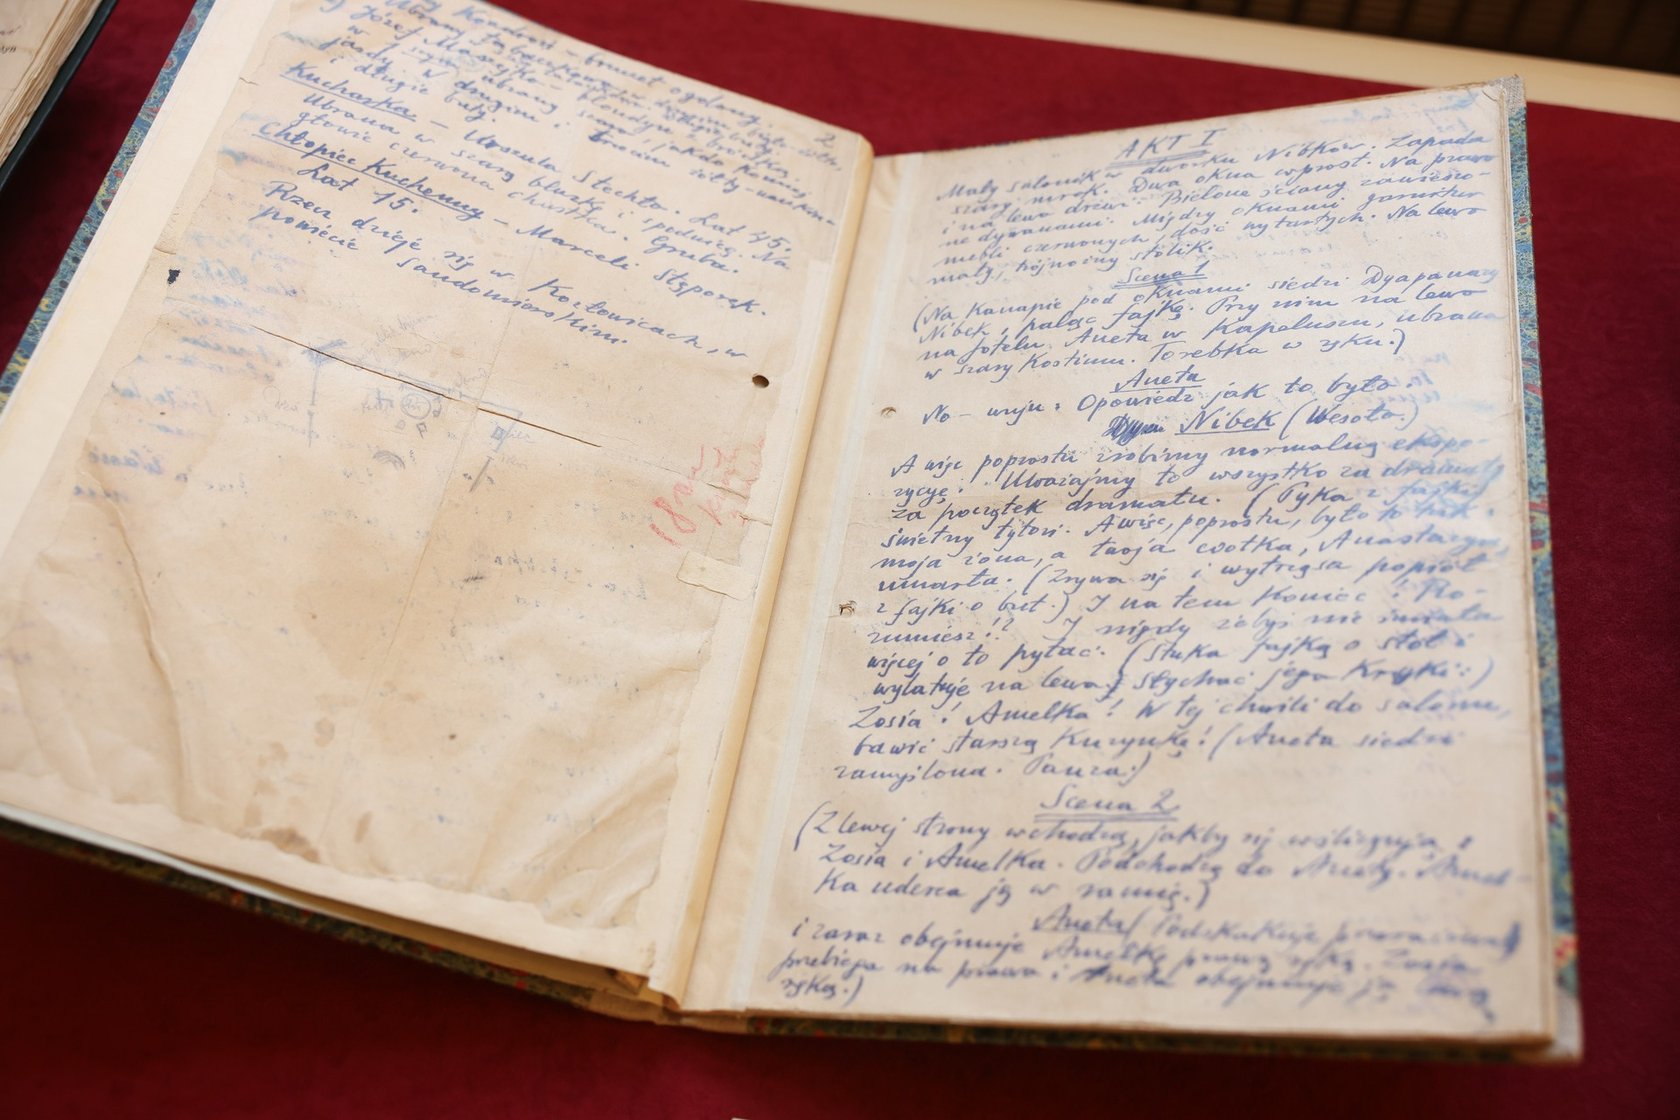 2
Kucharka – Urszula Stechło. Lat 45.
Ubrana w szarą bluzkę i spódnicę. Na
głowie czerwona chustka. Gruba.
Chłopiec Kuchenny – Marceli Stęporek.
Lat 15.
Rzecz dzieje się w Kozłowicach, w
powiecie Sandomierskim.
AKT I
Mały salonik w dworku Nibków. Zapada
szary mrok. Dwa okna wprost. Na prawo
i na lewo drzwi. Bielone ściany zawieszo-
ne dywanami. Między oknami garnitur
mebli czerwonych, dość wytartych. Na lewo
mały, trójnożny stolik.
Scena 1
(Na kanapie pod oknami siedzi Dyapanazy
Nibek, paląc fajkę. Przy nim na lewo
na fotelu Aneta w kapeluszu, ubrana
w szary kostium. Torebka w ręku.)
Aneta
No – wuju: Opowiedz jak to było.
Nibek (Wesoło.)
A więc poprostu zróbmy normalną ekspo-
zycję. Uważajmy to wszystko za
za początek dramatu. (Pyka z fajki)
świetny tytoń. A więc, poprostu, było to tak:
moja żona, a twoja ciotka, Anastazya,
umarła. (Zrywa się i wytrząsa popiół
z fajki o but.) I na tem koniec! Ro-
zumiesz!? I nigdy żebyś nie śmiała
więcej o to pytać. (Stuka fajką o stół i
wylatuje na lewo; słychać jego krzyki:)
Zosia! Amelka! W tej chwili do salonu,
bawić starszą kuzynkę! (Aneta siedzi
zamyślona. Pauza.)
Scena 2
(Z lewej strony wchodzą, jakby się wślizgują
Zosia i Amelka. Podchodzą do Anety. Amel-
ka uderza ją w ramię.)
Aneta (Podskakuje
i zaraz obejmuje Amelkę prawą ręką. Zosia
przebiega na prawo i Aneta obejmuje ją lewą
ręką.)